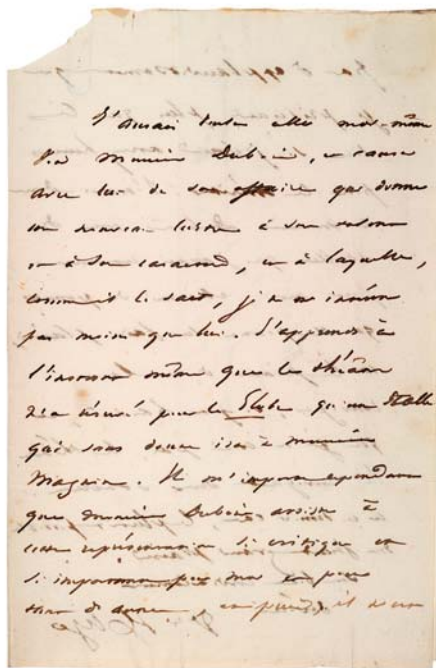 J'aurais voulu aller moi-même
voir Monsieur Dubois, et causer
avec lui de son affaire qui donne
un nouveau lustre à son talent
et à son caractère, et à laquelle,
comme il le sait, je ne m'intéresse
pas moins que lui. J'apprends à
l'instant même que le théâtre
n'a réservé pour le Globe qu'une stalle
qui sans doute ira à monsieur
Magnin. Il m'importe cependant
que monsieur Dubois assiste à
cette représentation si critique et
si importante pour moi et pour
il